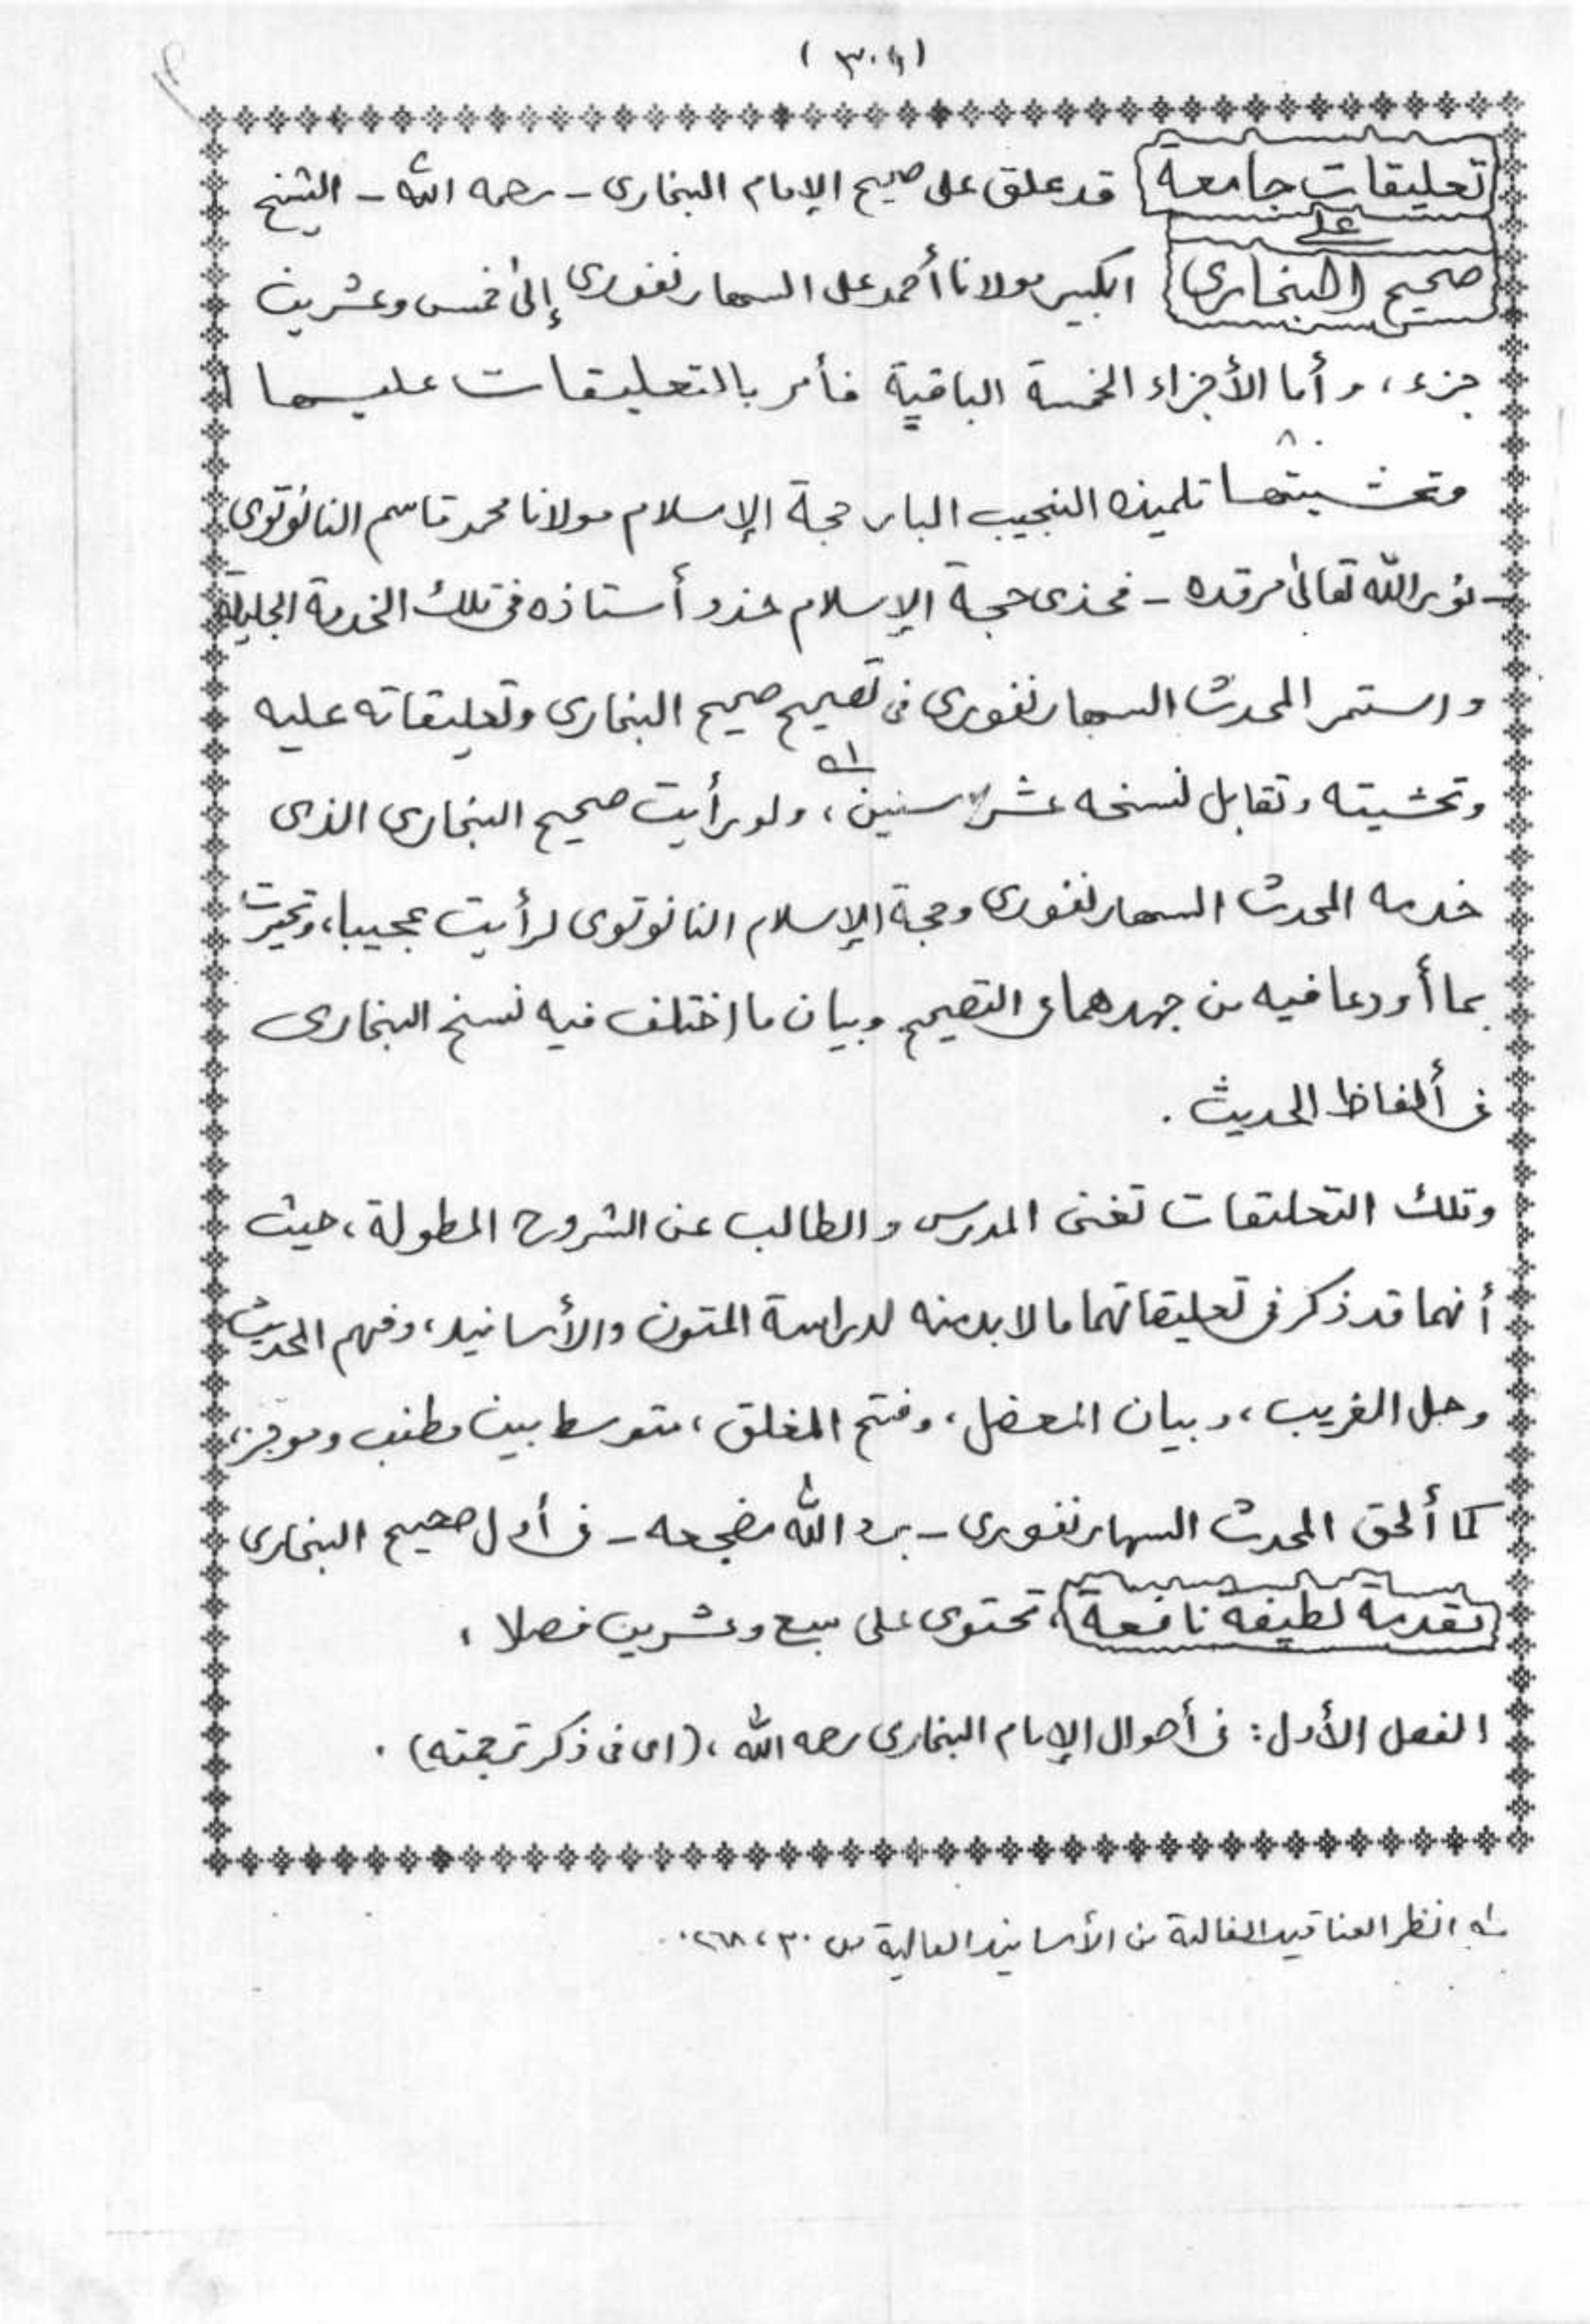 تعليقات جامعة قد علق على صحيح الإمام البخارى - رحمه الله - الشيخ
على
صحيح البخارى الكبير مولانا أحمد على السهارنفورى إلى خمس وعشرين
جزء، وأما الأجزاء الخمسة الباقية فأمر بالتعليقات عليها
وتحشيتها تلميذه النجيب البار حجة الإسلام مولانا محمد قاسم النانوتوى
- نور الله تعالى مرقده - فحذى حجة الإسلام حذو أستاذه فى تلك الخدمة الجليلة
واستمر المحدث السهارنفورى فى تصحيح صحيح البخارى وتعليقاته عليه
وتحشيته وتقابل نسخه عشر سنين، ولو رأيت صحيح البخارى الذى
خدمه المحدث السهارنفورى وحجة الإسلام النانوتوى لرأيت عجيبا، وتحيرت
بما أودعا فيه من جهدهما فى التصحيح وبيان ما اختلف فيه نسخ البخارى
فى ألفاظ الحديث .
وتلك التعليقات تغنى المدرس والطالب عن الشروح المطولة، حيث
أنهما قد ذكر فى تعليقاتهما ما لا بد منه لدراسة المتون والأسانيد، وفهم الحديث
وحل الغريب، وبيان المعضل، وفتح المغلق، متوسط بين مطنب وموجز،
كما ألحق المحدث السهارنفورى - برد الله مضجعه - فى أول صحيح البخارى
تقدمة لطيفة نافعة، تحتوى على سبع وعشرين فصلا ،
الفصل الأول: فى أحوال الإمام البخارى رحمه الله، (اى فى ذكر ترجمته) .
له انظر العناقيد الغالية من الأسانيد العالية ص ٣٠، ٢٦٨